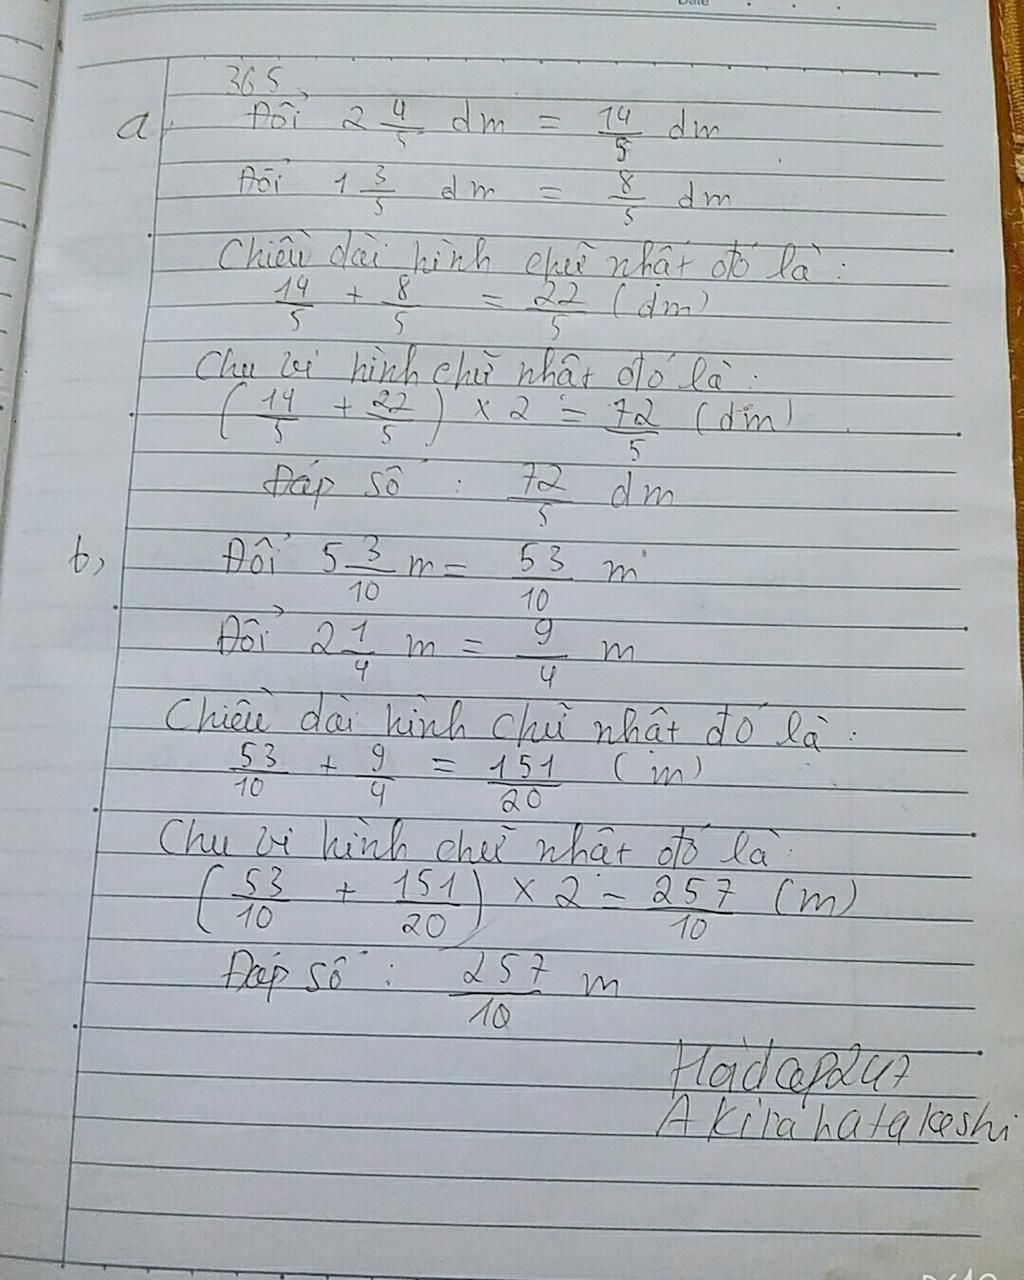 Date
365,
a, Đổi 2 4/5 dm = 14/5 dm
Đổi 1 3/5 dm = 8/5 dm
Chiều dài hình chữ nhật đó là :
14/5 + 8/5 = 22/5 (dm)
Chu vi hình chữ nhật đó là :
(14/5 + 22/5) × 2 = 72/5 (dm)
Đáp số : 72/5 dm
b, Đổi 5 3/10 m = 53/10 m
Đổi 2 1/4 m = 9/4 m
Chiều dài hình chữ nhật đó là :
53/10 + 9/4 = 151/20 (m)
Chu vi hình chữ nhật đó là :
(53/10 + 151/20) × 2 = 257/10 (m)
Đáp số : 257/10 m
Hoidap247
Akirahatakeshi